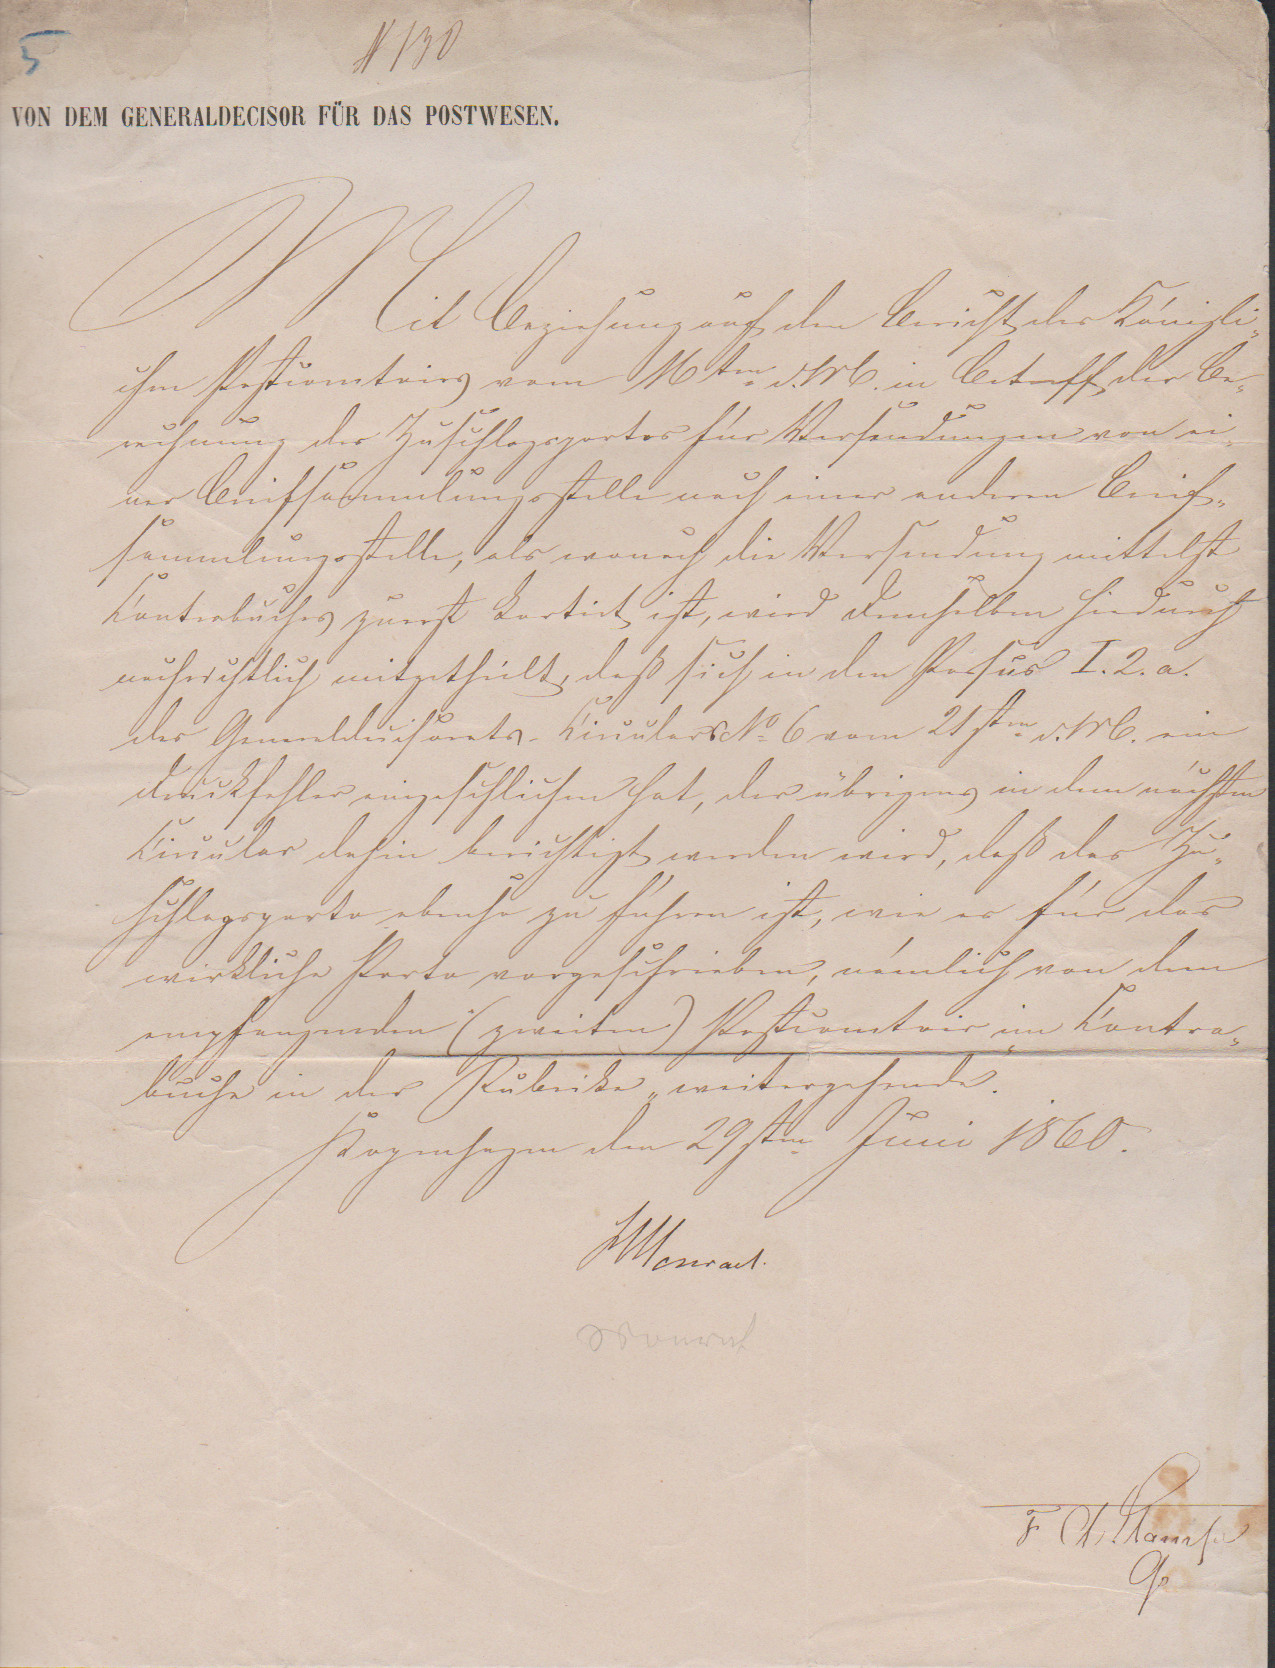 5
N 130
VON DEM GENERALDECISOR FÜR DAS POSTWESEN.
Mit Beziehung auf den Bericht des Königli-
chen Postcomtoirs vom 16ten d. M. in Betreff der Be-
rechnung des Zuschlagsportos für Versendungen von ei-
ner Briefsammlungsstelle nach einer anderen Brief-
sammlungsstelle, als wonach die Versendung mittelst
Contrabuches zuerst kartirt ist, wird demselben hiedurch
nachrichtlich mitgetheilt, daß sich in den Passus I. 2. a.
des Generaldecisorats-Circulars No 6 vom 21sten d. M. ein
Druckfehler eingeschlichen hat, der übrigens in dem nächsten
Circular dahin berichtigt werden wird, daß das Zu-
schlagsporto ebenso zu führen ist, wie es für das
wirkliche Porto vorgeschrieben, nämlich von dem
empfangenden (zweiten) Postcomtoir im Contra-
buche in der Rubrike „weitergehende.
Kopenhagen den 29sten Juni 1860.
Monrad.
Monrad